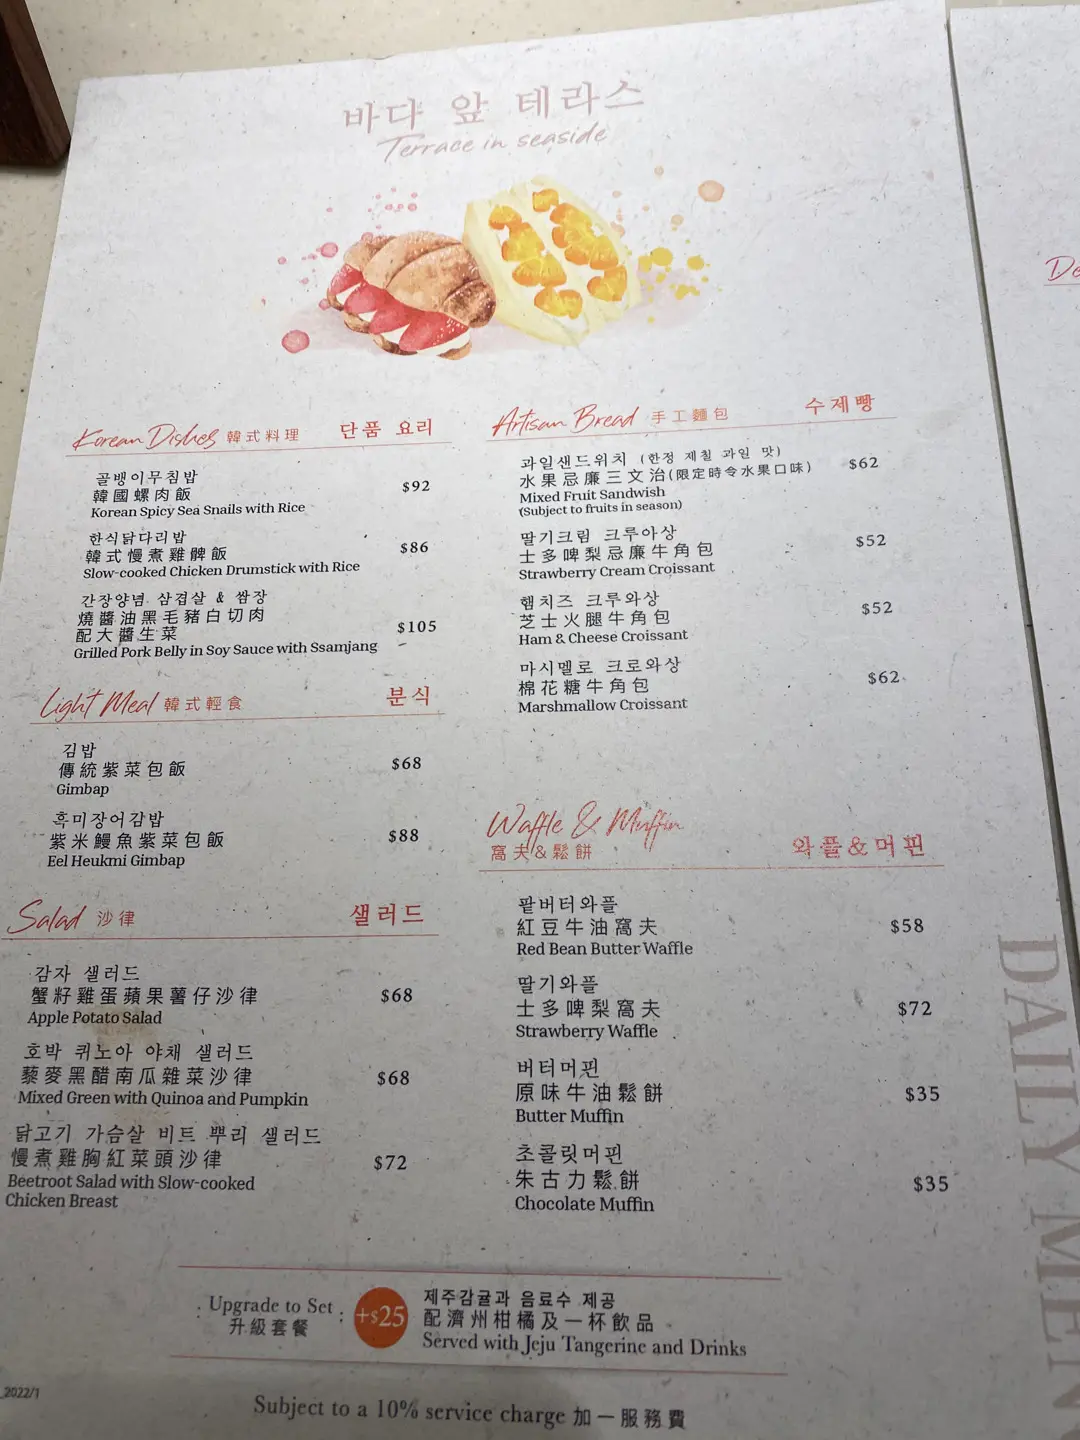 바다 앞 테라스
Terrace in seaside
Korean Dishes 韓式料理 단품 요리
골뱅이무침밥
韓國螺肉飯
Korean Spicy Sea Snails with Rice
$92
한식닭다리밥
韓式慢煮雞髀飯
Slow-cooked Chicken Drumstick with Rice
$86
간장양념 삼겹살 & 쌈장
燒醬油黑毛豬白切肉
配大醬生菜
Grilled Pork Belly in Soy Sauce with Ssamjang
$105
Light Meal 韓式輕食 분식
김밥
傳統紫菜包飯
Gimbap
$68
흑미장어감밥
紫米鰻魚紫菜包飯
Eel Heukmi Gimbap
$88
Salad 沙律 샐러드
감자 샐러드
蟹籽雞蛋蘋果薯仔沙律
Apple Potato Salad
$68
호박 퀴노아 야채 샐러드
藜麥黑醋南瓜雜菜沙律
Mixed Green with Quinoa and Pumpkin
$68
닭고기 가슴살 비트 뿌리 샐러드
慢煮雞胸紅菜頭沙律
Beetroot Salad with Slow-cooked
Chicken Breast
$72
Artisan Bread 手工麵包 수제빵
과일샌드위치 (한정 제철 과일 맛)
水果忌廉三文治(限定時令水果口味)
Mixed Fruit Sandwish
(Subject to fruits in season)
$62
딸기크림 크루아상
士多啤梨忌廉牛角包
Strawberry Cream Croissant
$52
햄치즈 크루와상
芝士火腿牛角包
Ham & Cheese Croissant
$52
마시멜로 크로와상
棉花糖牛角包
Marshmallow Croissant
$62
Waffle & Muffin
窩夫&鬆餅 와플&머핀
팥버터와플
紅豆牛油窩夫
Red Bean Butter Waffle
$58
딸기와플
士多啤梨窩夫
Strawberry Waffle
$72
버터머핀
原味牛油鬆餅
Butter Muffin
$35
초콜릿머핀
朱古力鬆餅
Chocolate Muffin
$35
Upgrade to Set :
升級套餐
+$25
제주감귤과 음료수 제공
配濟州柑橘及一杯飲品
Served with Jeju Tangerine and Drinks
_2022/1
Subject to a 10% service charge 加一服務費
De
DAILY MEN